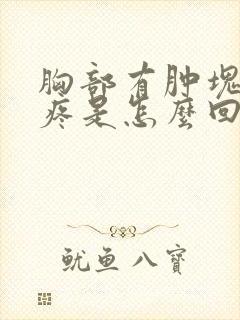 胸部有肿塊
疼是怎麼回
鱿鱼八寶